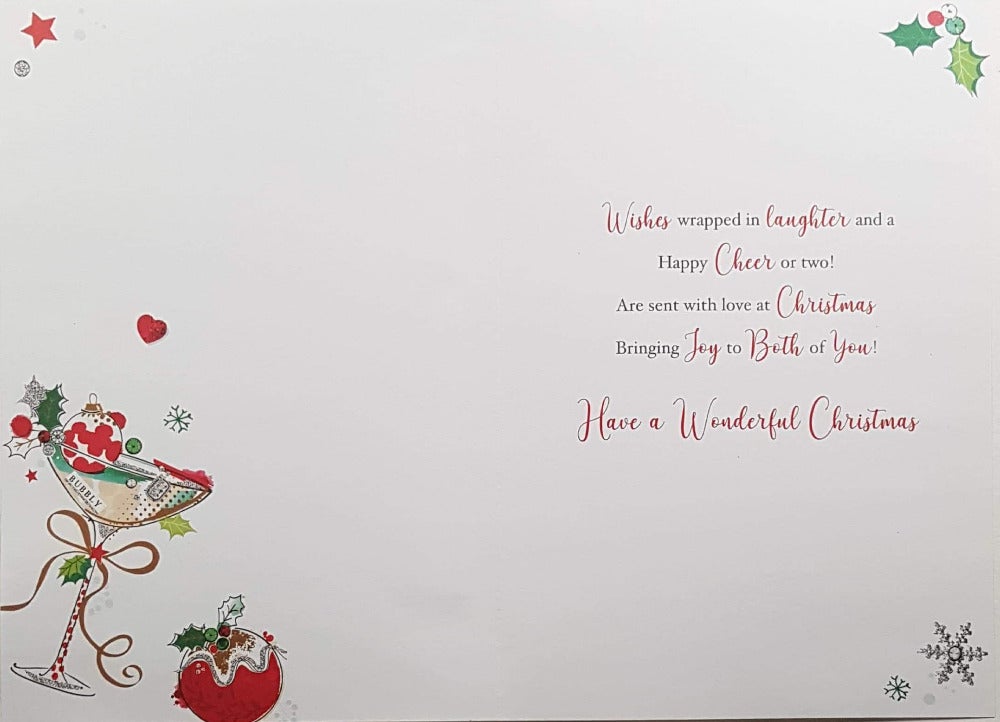 Wishes wrapped in laughter and a
Happy Cheer or two!
Are sent with love at Christmas
Bringing Joy to Both of You!
Have a Wonderful Christmas
BUBBLY